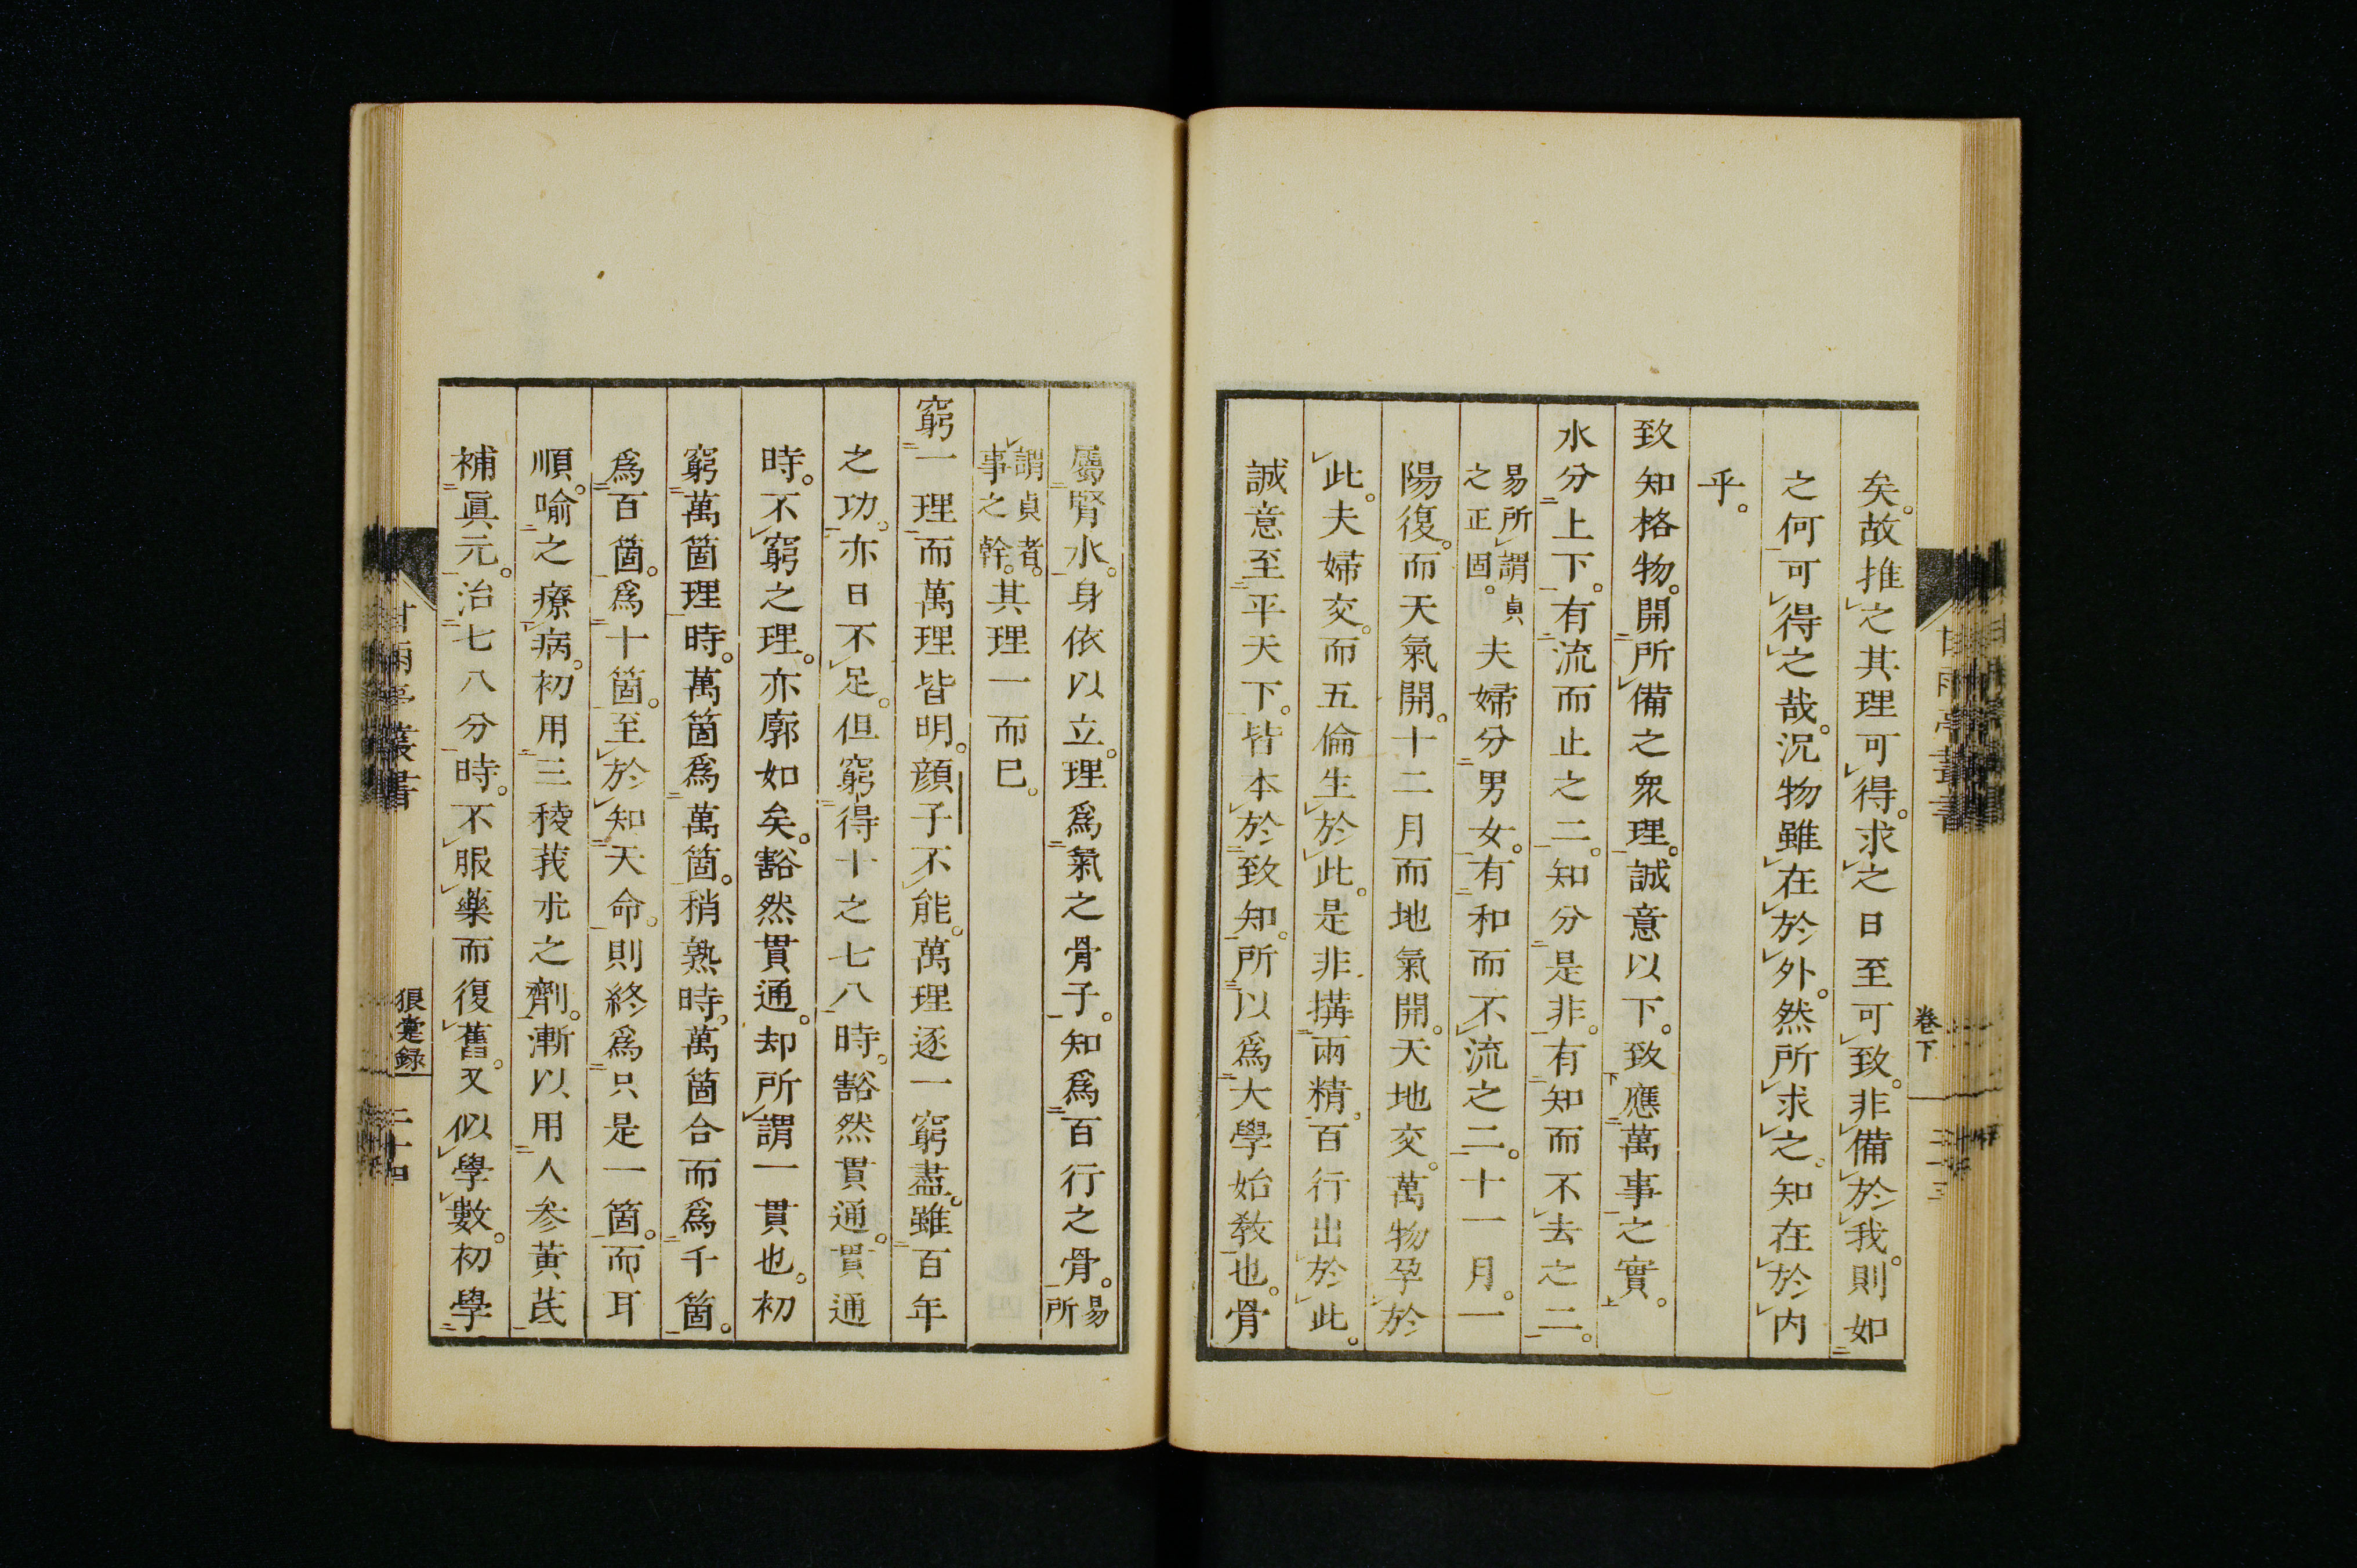 矣。故推之其理可得。求之日至可致。非備於我。則如
之何可得之哉。況物雖在於外。然所求之。知在於内
乎。
致知格物。開所備之衆理。誠意以下。致應萬事之實。
水分上下。有流而止之二。知分是非。有知而不去之二。
易所謂貞
之正固。
夫婦分男女。有和而不流之二。十一月。一
陽復。而天氣開。十二月而地氣開。天地交。萬物孕於
此。夫婦交。而五倫生於此。是非搆兩精。百行出於此。
誠意至平天下。皆本於致知。所以爲大學始敎也。骨
甘雨亭叢書
卷下
屬腎水。身依以立。理爲氣之骨子。知爲百行之骨。
易
所
謂貞者。
事之幹。
其理一而已。
窮一理而萬理皆明。顔子不能。萬理逐一窮盡。雖百年
之功。亦日不足。但窮得十之七八時。豁然貫通。貫通
時。不窮之理。亦廓如矣。豁然貫通。却所謂一貫也。初
窮萬箇理時。萬箇爲萬箇。稍熟時。萬箇合而爲千箇。
爲百箇。爲十箇。至於知天命。則終爲只是一箇。而耳
順。喻之療病。初用三稜莪朮之劑。漸以用人参黄茋
補眞元。治七八分時。不服藥而復舊。又似學數。初學
甘雨亭叢書
狼疐録
二十四